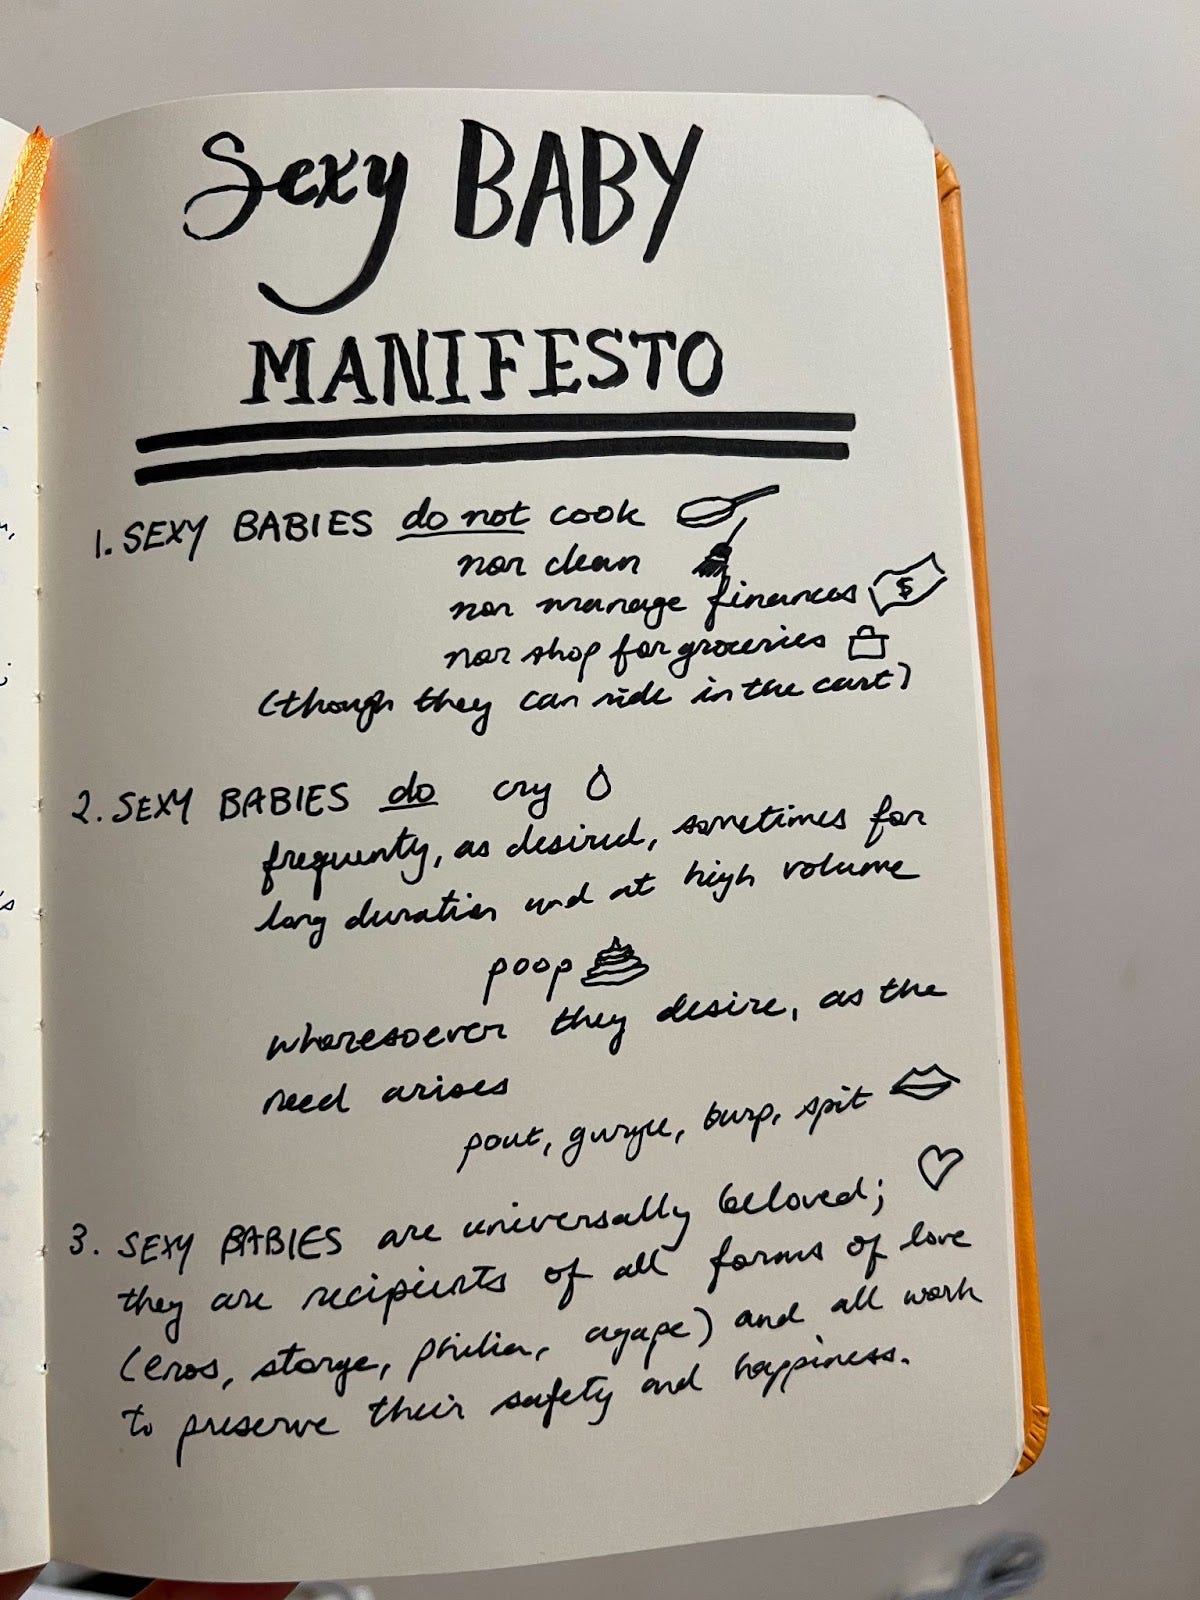 Sexy BABY
MANIFESTO
1. SEXY BABIES do not cook
nor clean
nor manage finances $
nor shop for groceries
(though they can ride in the cart)
2. SEXY BABIES do cry
frequently, as desired, sometimes for
long duration and at high volume
poop
wheresoever they desire, as the
need arises
pout, gurgle, burp, spit
3. SEXY BABIES are universally beloved;
they are recipients of all forms of love
(eros, storge, philia, agape) and all work
to preserve their safety and happiness.